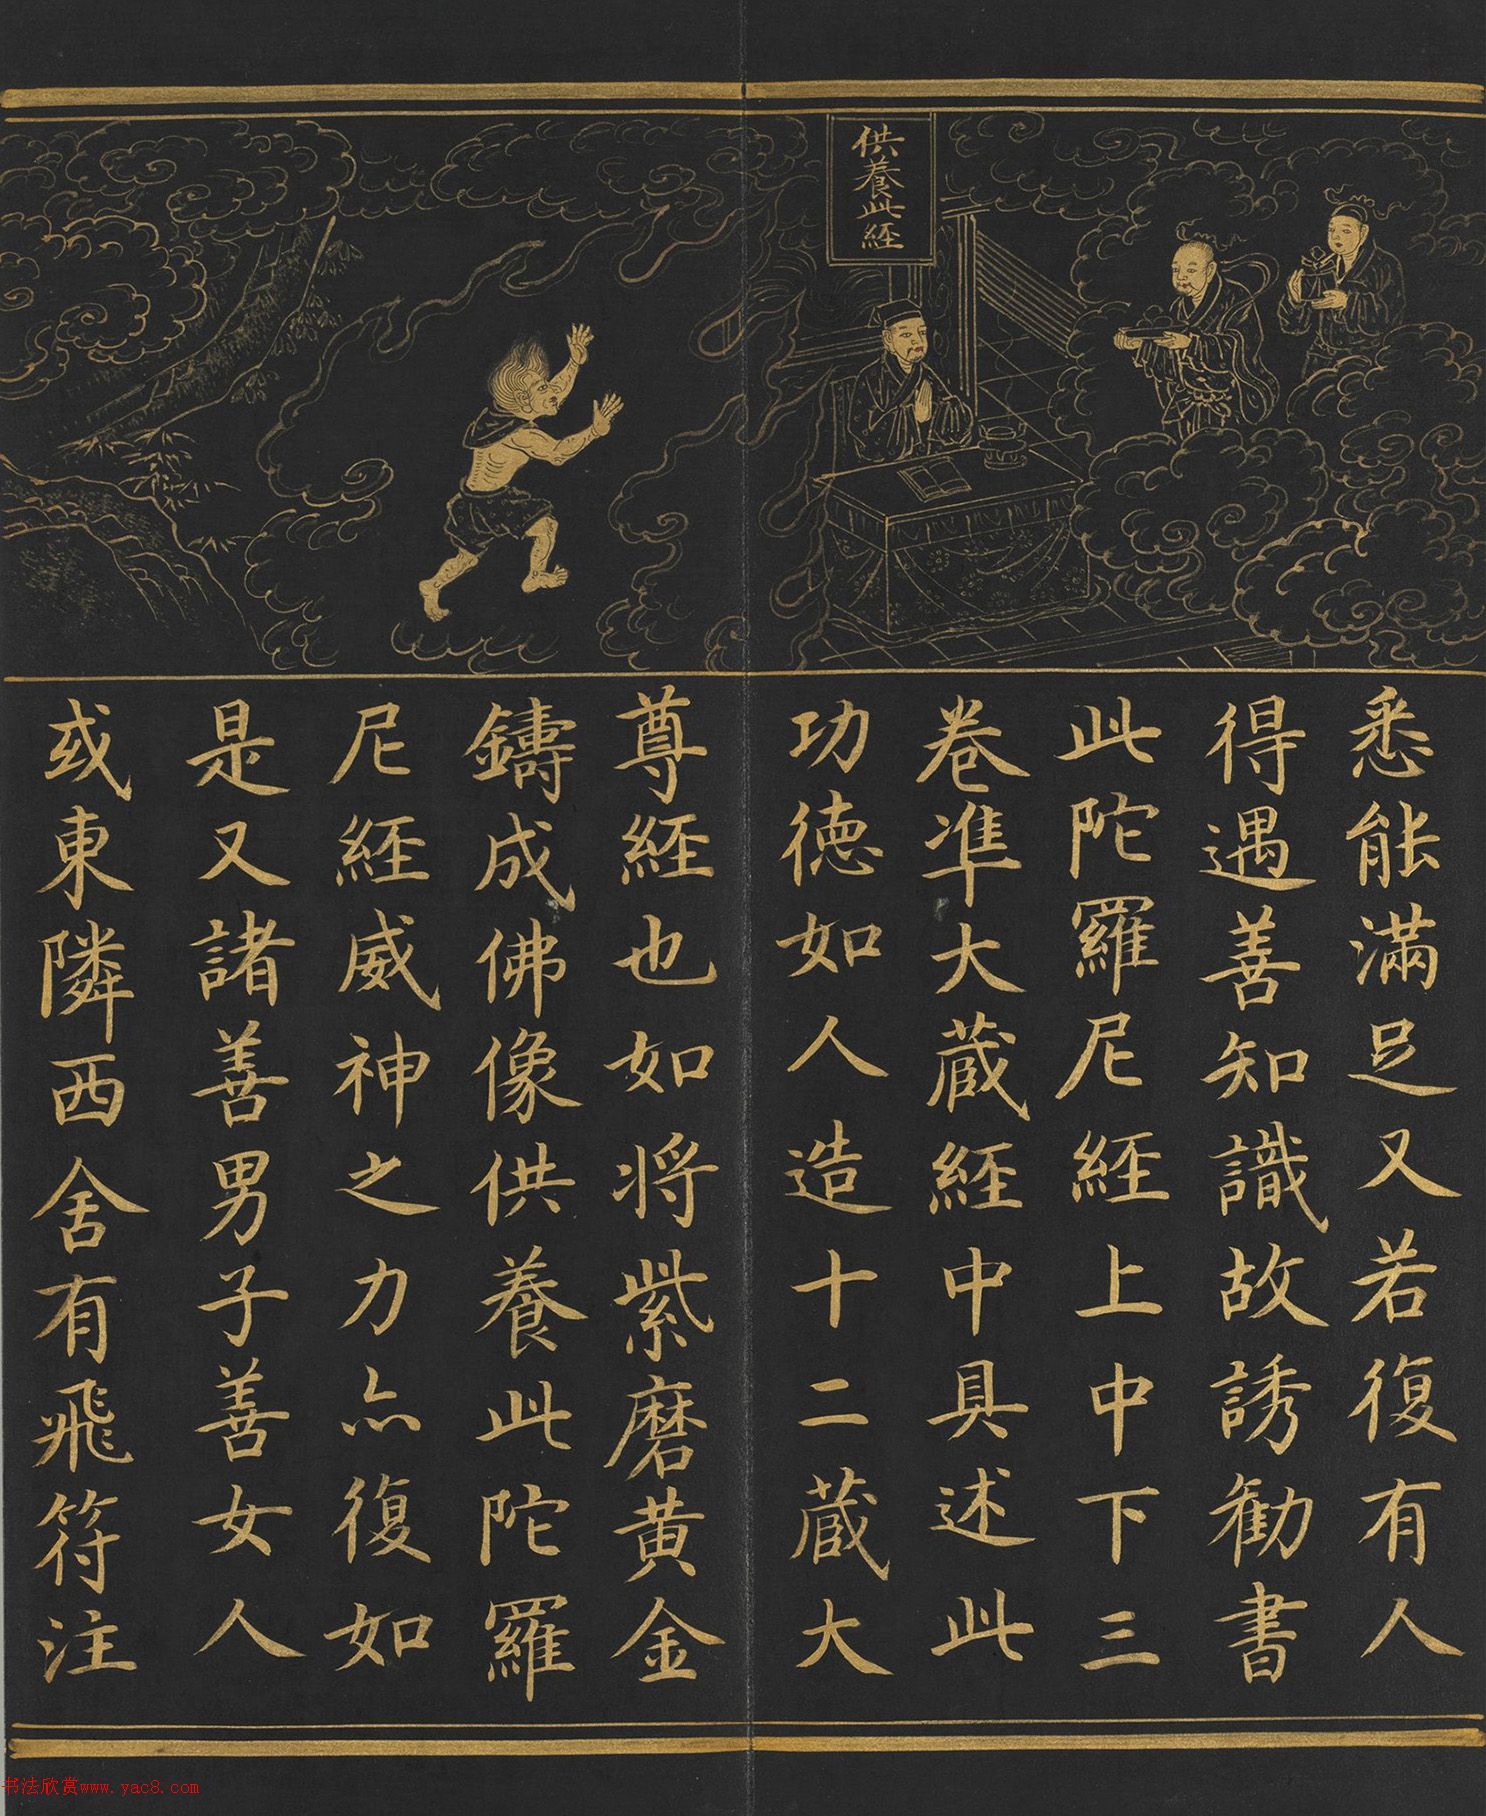 供養此経
悉能滿足又若復有人
得遇善知識故誘勸書
此陀羅尼経上中下三
卷準大蔵経中具述此
功德如人造十二蔵大
尊経也如将紫磨黄金
鑄成佛像供養此陀羅
尼経威神之力亦復如
是又諸善男子善女人
或東隣西舍有飛符注
书法欣赏www.yac8.com